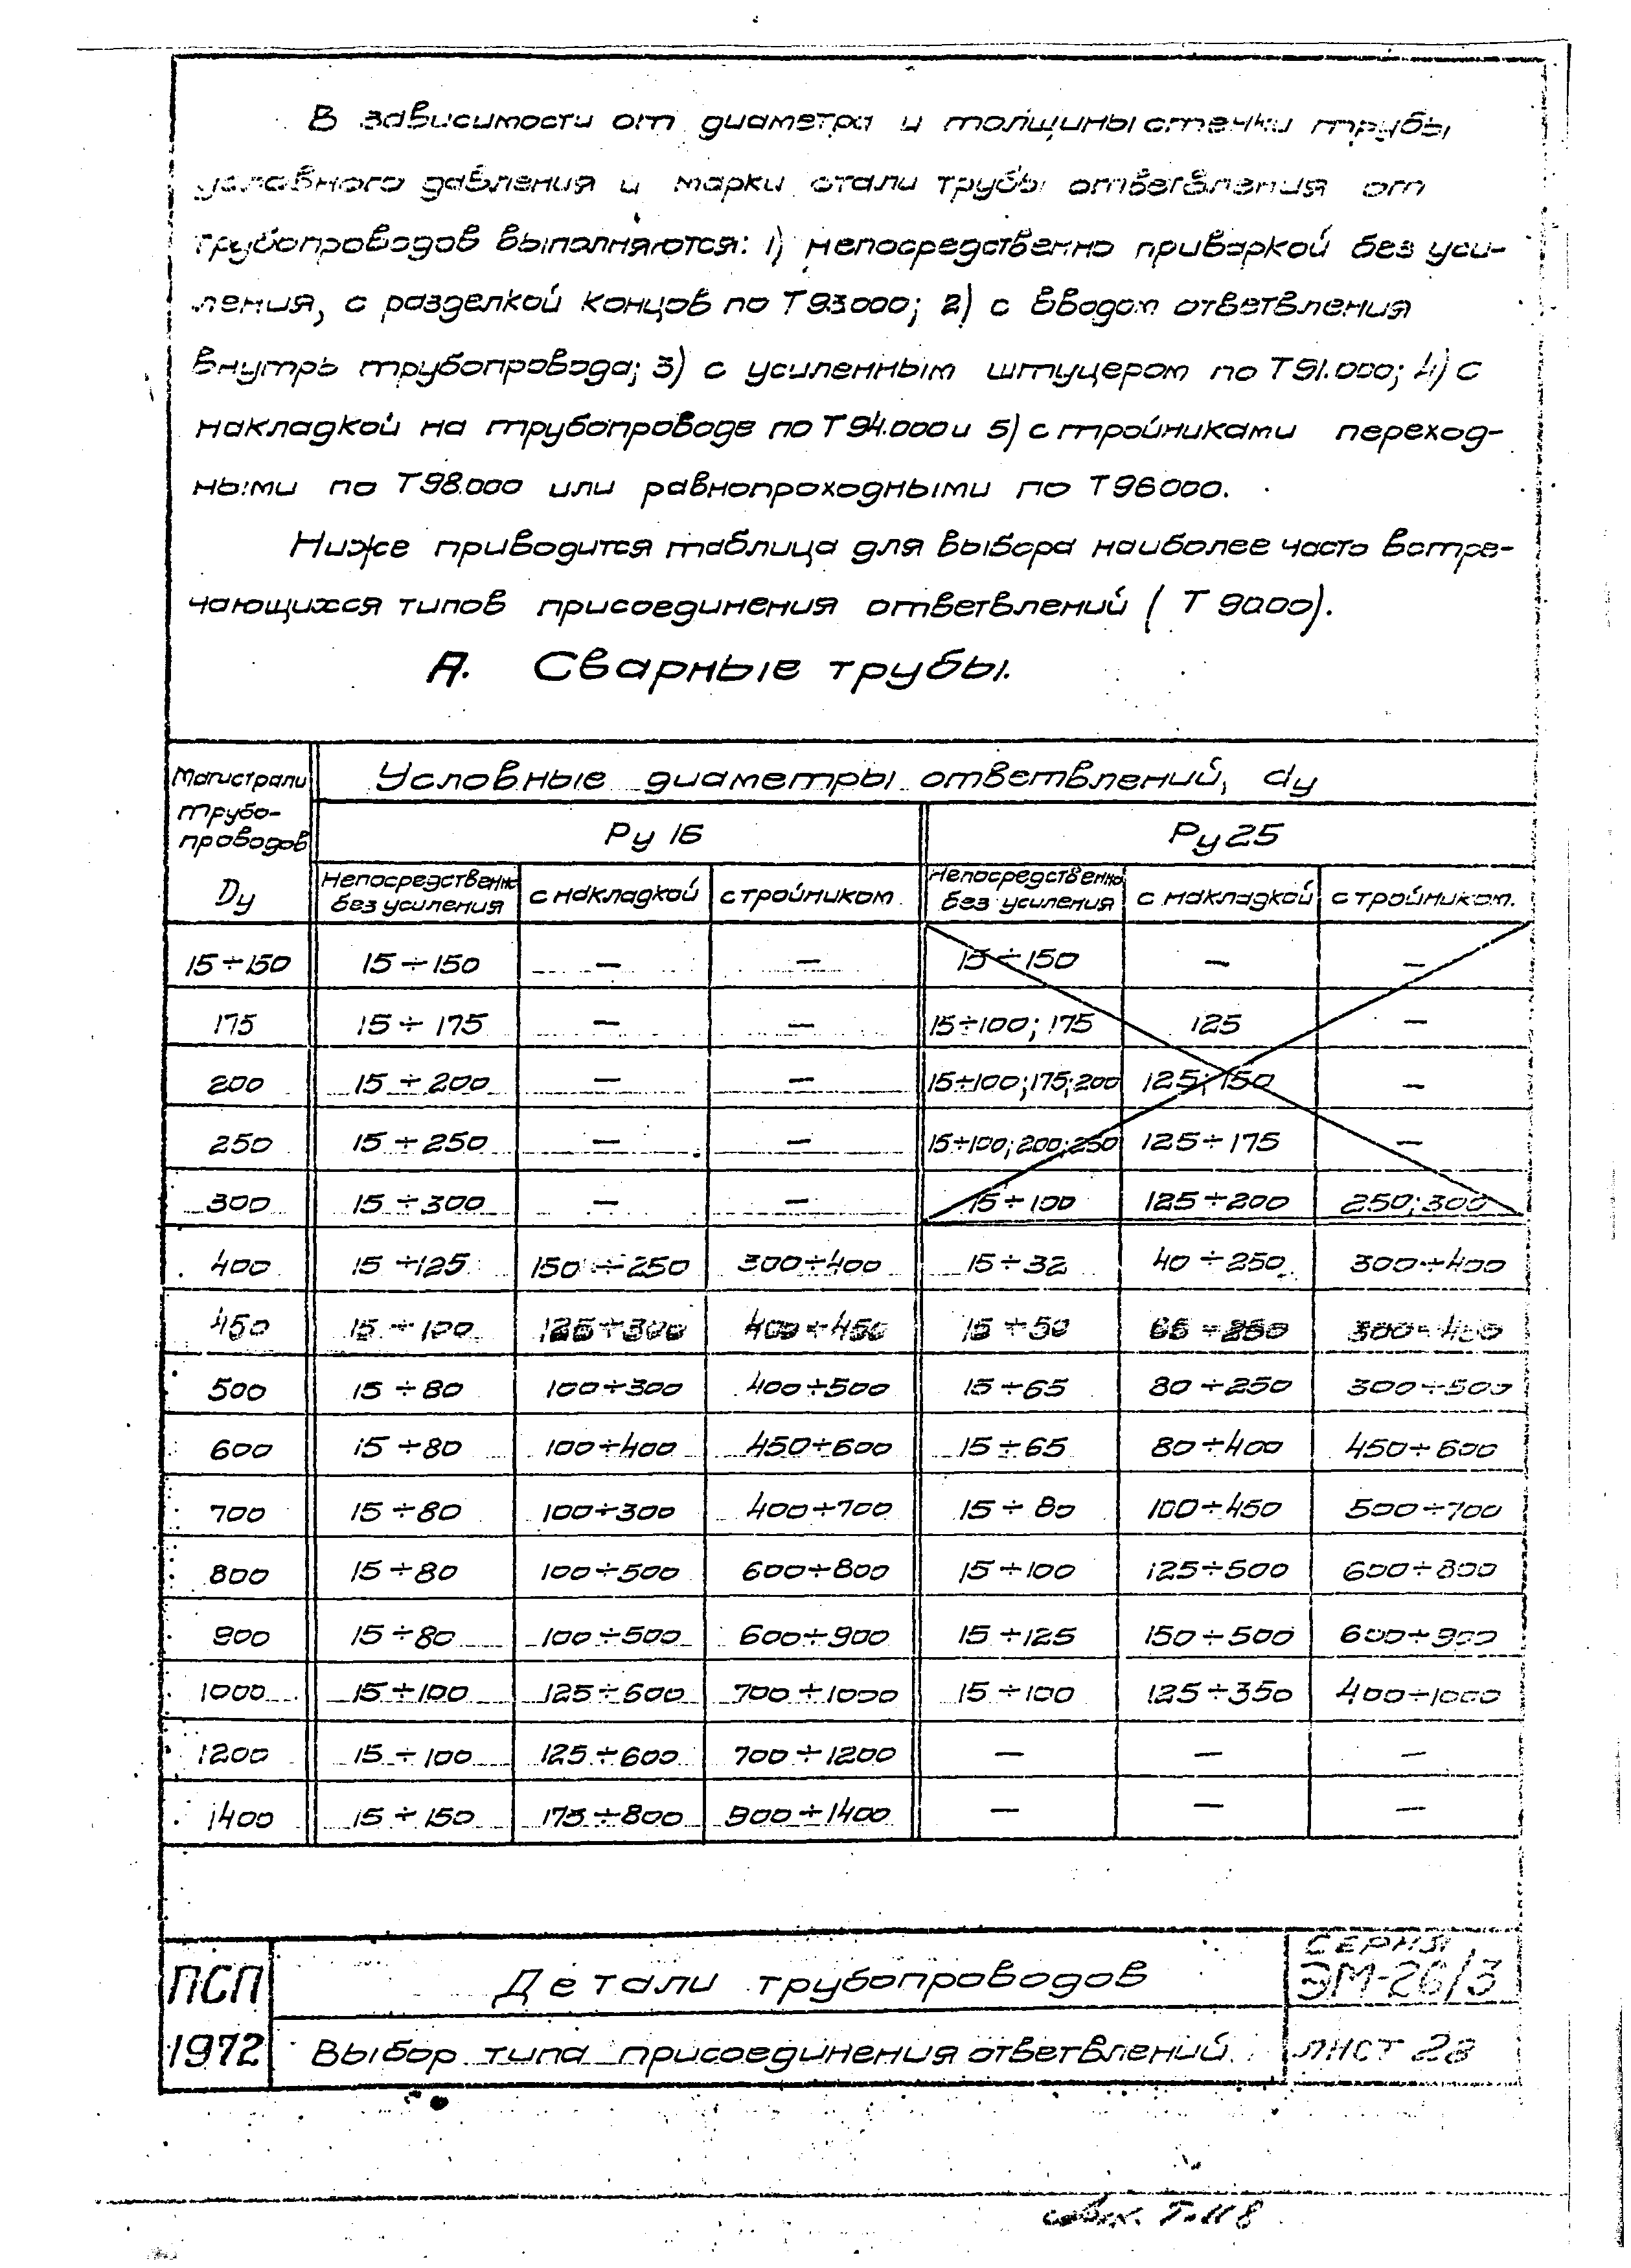 В зависимости от диаметра и толщины стенки трубы
условного давления и марки стали трубы ответвления от
трубопроводов выполняются: 1) непосредственно приваркой без уси-
ления, с разделкой концов по Т93000; 2) с вводом ответвления
внутрь трубопровода; 3) с усиленным штуцером по Т91.000; 4) с
накладкой на трубопроводе по Т94.000 и 5) с тройниками переход-
ными по Т98.000 или равнопроходными по Т96000.
Ниже приводится таблица для выбора наиболее часто встре-
чающихся типов присоединения ответвлений ( Т 9000).
А. Сварные трубы.
Магистрали трубо-проводов Dу Условные диаметры ответвлений, dу
Ру 16 Ру 25
Непосредственно без усиления с накладкой с тройником Непосредственно без усиления с накладкой с тройником.
15÷150 15÷150 — — 15÷150 — —
175 15÷175 — — 15÷100; 175 125 —
200 15÷200 — — 15÷100; 175; 200 125; 150 —
250 15÷250 — — 15÷100; 200; 250 125÷175 —
300 15÷300 — — 15÷100 125÷200 250; 300
400 15÷125 150÷250 300÷400 15÷32 40÷250 300÷400
450 15÷100 125÷300 400÷450 15÷50 65÷250 300÷450
500 15÷80 100÷300 400÷500 15÷65 80÷250 300÷500
600 15÷80 100÷400 450÷600 15÷65 80÷400 450÷600
700 15÷80 100÷300 400÷700 15÷80 100÷450 500÷700
800 15÷80 100÷500 600÷800 15÷100 125÷500 600÷800
900 15÷80 100÷500 600÷900 15÷125 150÷500 600÷900
1000 15÷100 125÷600 700÷1000 15÷100 125÷350 400÷1000
1200 15÷100 125÷600 700÷1200 — — —
1400 15÷150 175÷800 900÷1400 — — —
ПСП Детали трубопроводов СЕРИЯ ЭМ-26/3
1972 Выбор типа присоединения ответвлений. ЛИСТ
Т-118